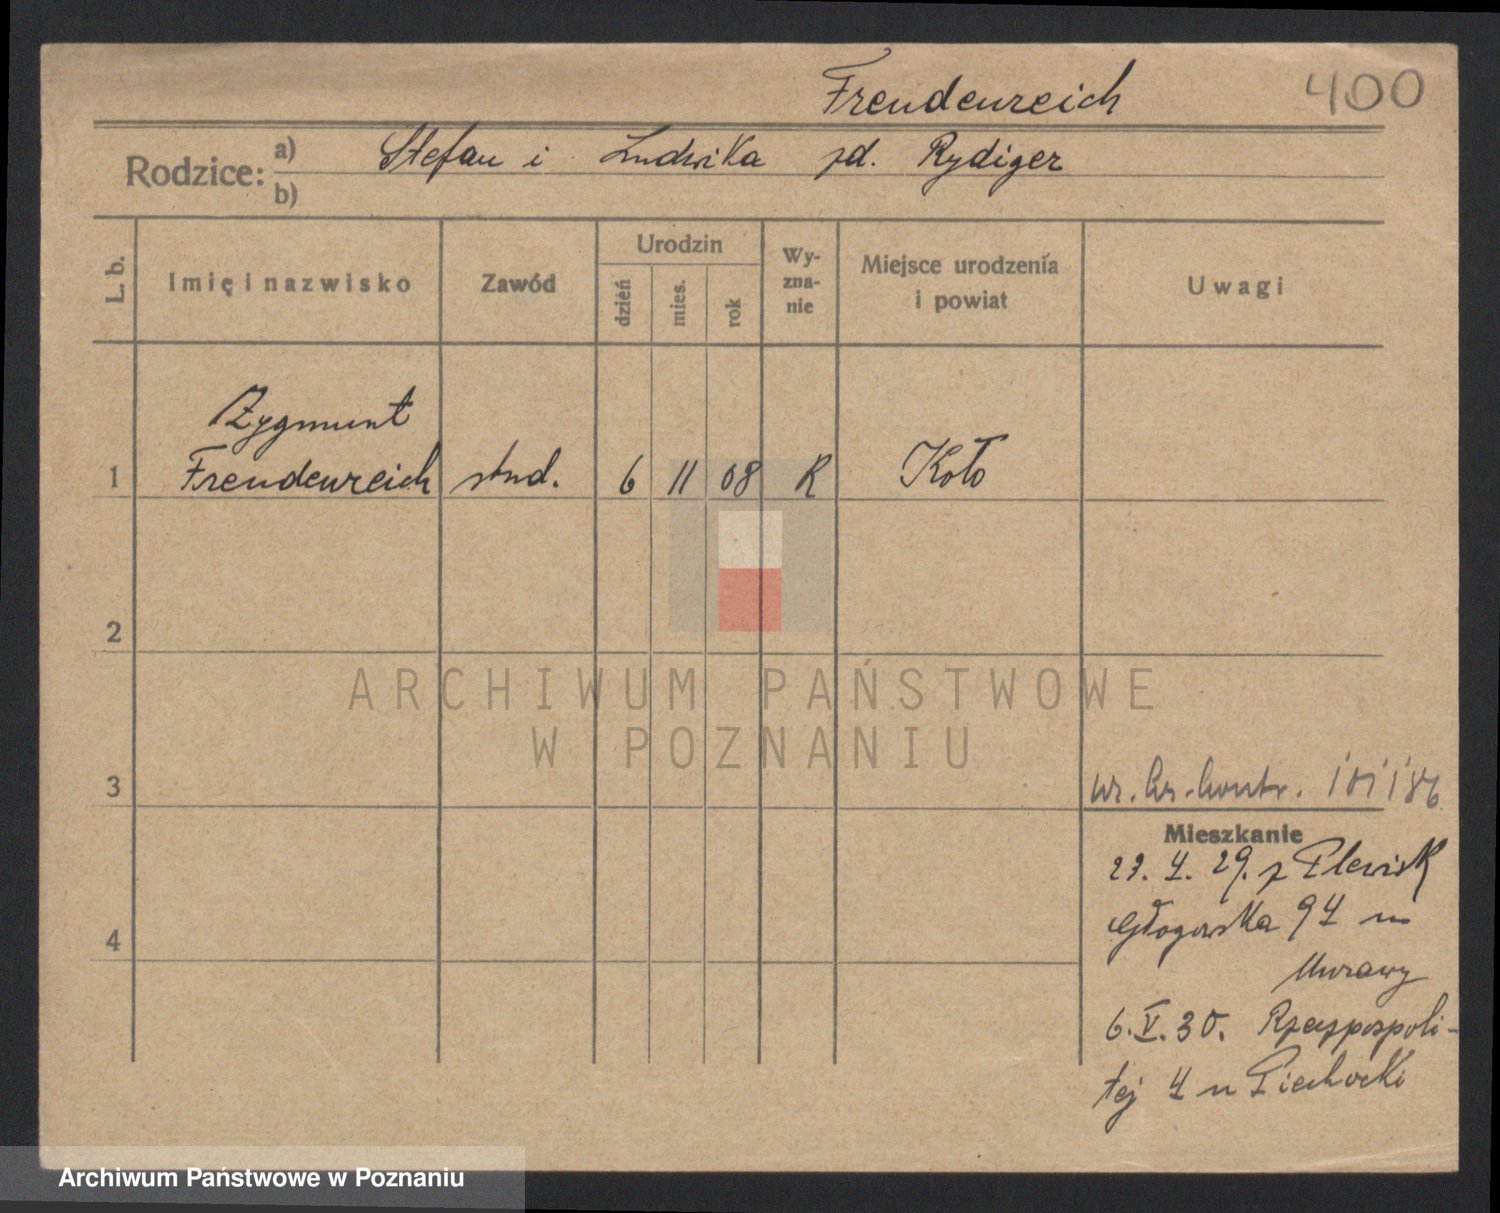 Freudenreich
400
Rodzice: a) Stefan i Ludwika zd. Rydiger
b)
L. b.
Imię i nazwisko
Zawód
Urodzin
dzień
mies.
rok
Wy-
zna-
nie
Miejsce urodzenia
i powiat
Uwagi
Zygmunt
1 Freudenreich stud. 6 11 08 R Koło
2
ARCHIWUM PAŃSTWOWE
W POZNANIU
3
Mieszkanie
23. 4. 29. z Plewisk
Głogowska 94 m
Murawy
4
6.V.30. Rzeczpospoli-
tej 4 u Piechocki
Archiwum Państwowe w Poznaniu